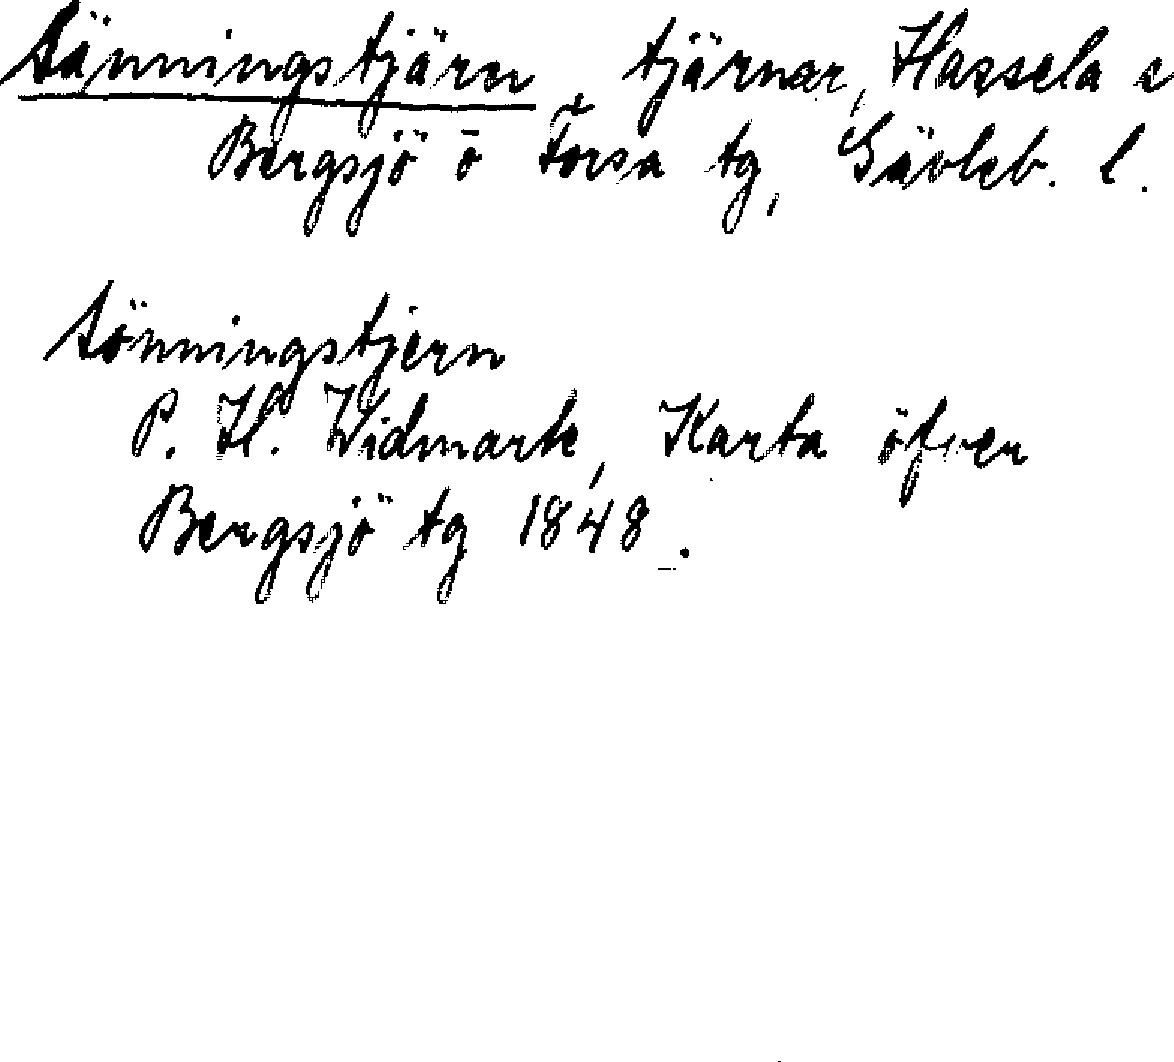 Sänningstjärn, tjärnar, Hassela s
Bergsjö o Forsa tg, Gävleb. l.
Sönningstjern
P. H. Widmark, Karta öfver
Bergsjö tg 1848.